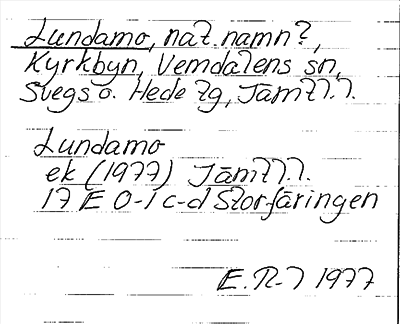 Lundamo, nat. namn?,
Kyrkbyn, Vemdalens sn,
Svegs o. Hede tg, Jämtl.l.
Lundamo
ek (1977) Jämtl.l.
17 E 0-1 c-d Storfåringen
E.R-l 1977